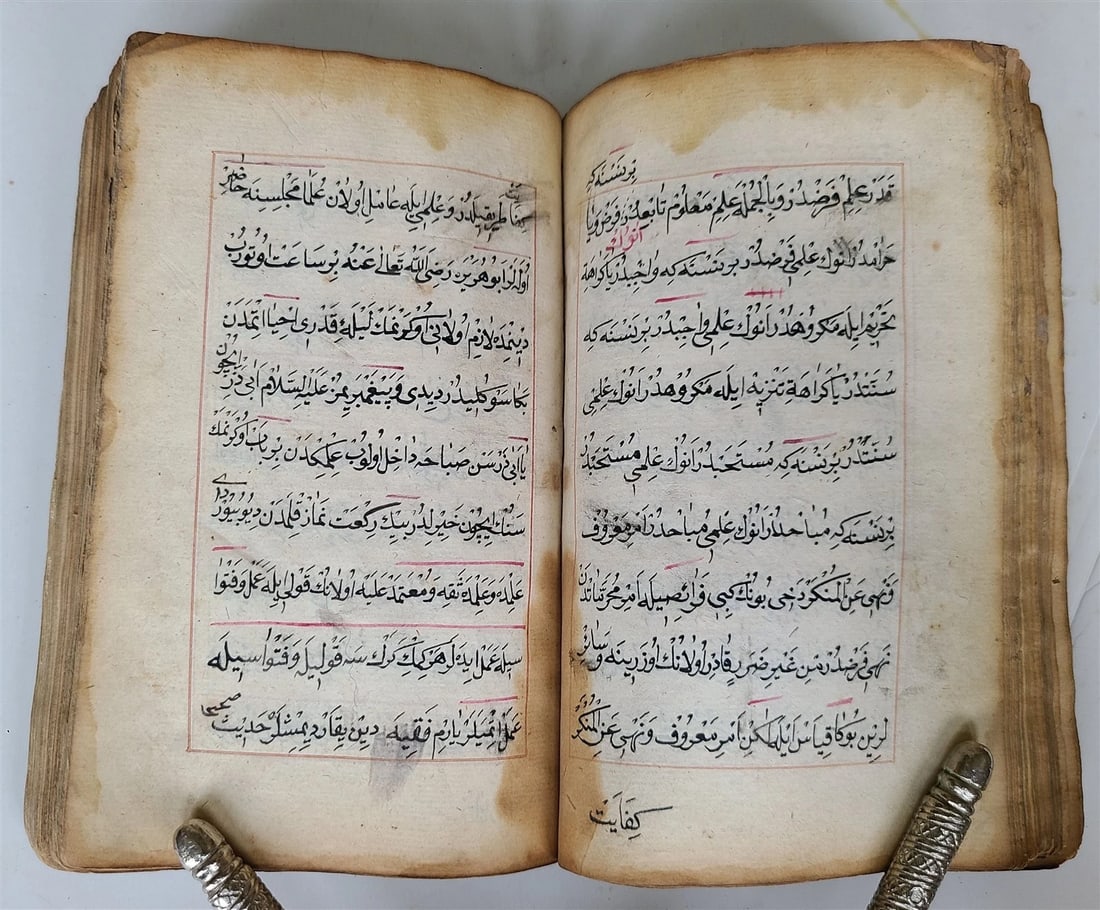 قَدَرْ عِلْمْ فَرْضْدُرْ وَبِالْجُمْلَه عِلِمْ مَعْلُومَ تَابِعْدُرْ فَرْض وَيَا بِرْ نَسْنَه كِه
حَرَامْدُرْ اَنُوكْ عِلْمِى فَرْضْدُرْ بِرْ نَسْنَه كِه وَاجِبْدُرْ يَا كَرَاهَةِ
تَحْرِيمْ اِيلَه مَكْرُوهْدُرْ اَنُوكْ عِلْمِى وَاجِبْدُرْ بِرْ نَسْنَه كِه
سُنَّتْدُرْ يَا كَرَاهَةِ تَنْزِيه اِيلَه مَكْرُوهْدُرْ اَنُوكْ عِلْمِى
سُنَّتْدُرْ بِرْ نَسْنَه كِه مُسْتَحَبْدُرْ اَنُوكْ عِلْمِى مُسْتَحَبْدُرْ
بِرْ نَسْنَه كِه مُبَاحْدُرْ اَنُوكْ عِلْمِى مُبَاحْدُرْ اَمْرِ مَعْرُوفْ
وَنَهْىِ عَنِ الْمُنْكَرْ دَخِى بُونُكْ كِبِى فَرَائِضِيلَه اَمْرْ مُحَرَّمَاتْدَنْ
نَهْىْ فَرْضْدُرْ مِنْ غَيْرِ ضَرَرٍ قَادِرْ اُولَانْكْ اُوزَرِينَه وَسَائِرْ
لَرِينْ بُوكَا قِيَاسْ اَيْلَه لٰكِنْ اَمْرِ مَعْرُوفْ وَنَهْىِ عَنِ الْمُنْكَرْ
كِفَايَتْ
طَرِيقِيلَدُرْ وَعِلْمِى اِيلَه عَامِلْ اُولَانْ عُلَمَا مَجْلِسِنَه حَاضِرْ
اُولَه لَرْ اَبُو هُرَيْرَه رَضِىَ اللّٰهُ تَعَالٰى عَنْهُ بِرْ سَاعَتْ اُوتُورُبْ
دِينِمْدَه لَازِمْ اُولَانِى اُوكْرَنْمَكْ لَيْلَۀِ قَدْرِى اِحْيَا اِتْمَدَنْ
بَكَا سَوْكُلِيدُرْ دِيدِى وَپَيْغَمْبَرِيمُزْ عَلَيْهِ السَّلَامْ اَبِى ذَرْ اِيچُونْ
يَا اَبِى ذَرْ سَنْ صَبَاحَه دَاخِلْ اُولُوبْ عِلْمْكَدَنْ بِرْ بَابْ اُوكْرَنْمَكْ
سَنُكْ اِيچُونْ خَيْرْلِدُرْ بِيكْ رَكْعَتْ نَمَازْ قِلْمَدَنْ دِيُو بُيُورْدِى
عِلْمْدَه وَعَمَلْدَه ثِقَه وَمُعْتَمَدْ عَلَيْهِ اُولَانْكْ قَوْلِى اِيلَه عَمَلْ وَفَتْوَا
سِيلَه عَمَلْ اِيدَه لَرْ هَرْ كِمْكْ كَرَكْسَه قَوْلِيلَه وَفَتْوَاسِيلَه
عَمَلْ اِتْمَيَلَرْ يَارِمْ فَقِيه دِينْ يِقَارْ دِيمِشْلَرْ حَدِيثْ صَحِيحْ